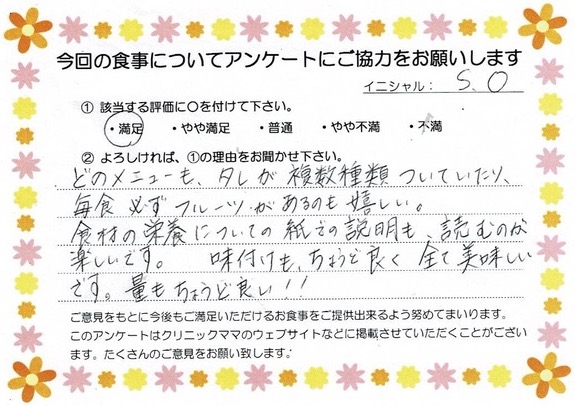 今回の食事についてアンケートにご協力をお願いします
イニシャル： S.O
① 該当する評価に〇を付けて下さい。
・満足 ・やや満足 ・普通 ・やや不満 ・不満
② よろしければ、①の理由をお聞かせ下さい。
どのメニューも、タレが複数種類ついていたり、
毎食必ずフルーツがあるのも嬉しい。
食材の栄養についての紙での説明も、読むのが
楽しいです。 味付けも、ちょうど良く全て美味しい
です。量もちょうど良い!!
ご意見をもとに今後もご満足いただけるお食事をご提供出来るよう努めてまいります。
このアンケートはクリニックママのウェブサイトなどに掲載させていただくことがござい
ます。たくさんのご意見をお願い致します。